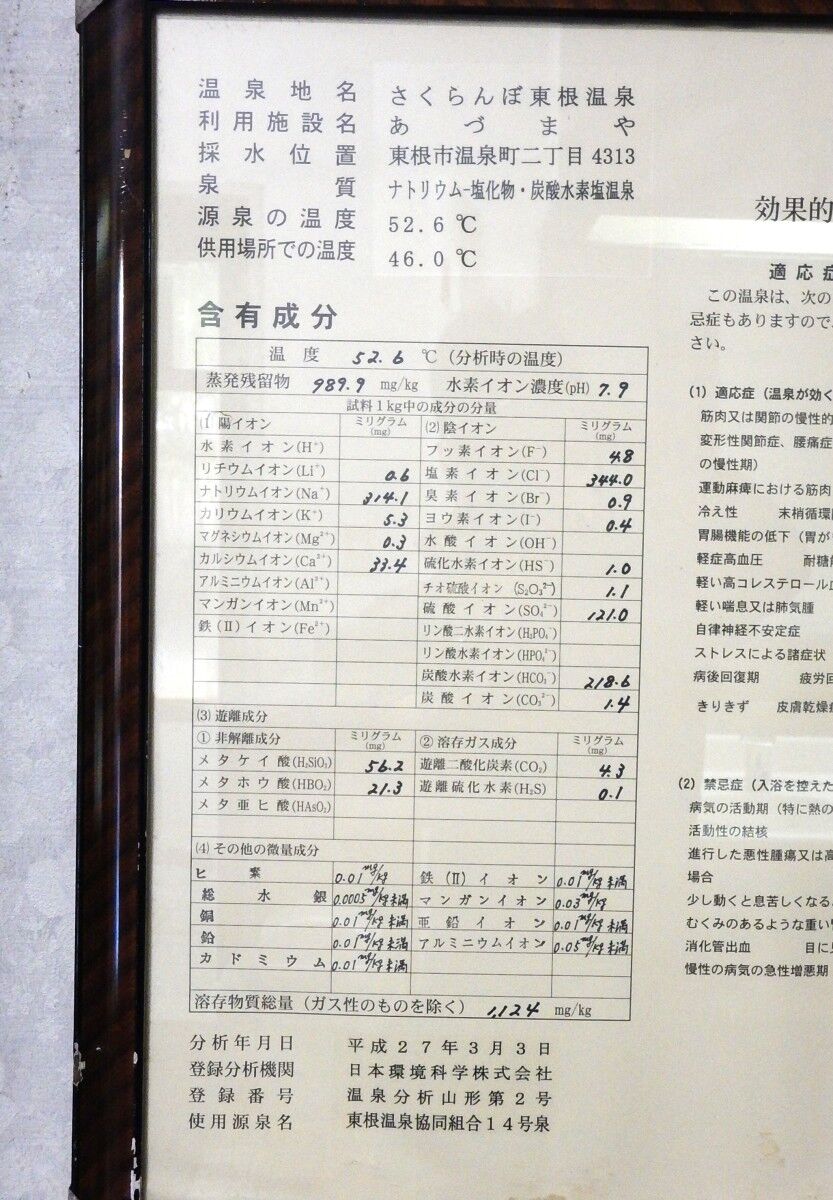 温泉地名 さくらんぼ東根温泉
利用施設名 あづまや
採水位置 東根市温泉町二丁目4313
泉質 ナトリウム-塩化物・炭酸水素塩温泉
源泉の温度 52.6 ℃
供用場所での温度 46.0 ℃
含有成分
温度 52.6 ℃(分析時の温度)
蒸発残留物 989.9 mg/kg 水素イオン濃度(pH) 7.9
試料1kg中の成分の分量
(1) 陽イオン ミリグラム(mg) (2) 陰イオン ミリグラム(mg)
水素イオン(H⁺) フッ素イオン(F⁻) 4.8
リチウムイオン(Li⁺) 0.6 塩素イオン(Cl⁻) 344.0
ナトリウムイオン(Na⁺) 314.1 臭素イオン(Br⁻) 0.9
カリウムイオン(K⁺) 5.3 ヨウ素イオン(I⁻) 0.4
マグネシウムイオン(Mg²⁺) 0.3 水酸イオン(OH⁻)
カルシウムイオン(Ca²⁺) 33.4 硫化水素イオン(HS⁻) 1.0
アルミニウムイオン(Al³⁺) チオ硫酸イオン(S₂O₃²⁻) 1.1
マンガンイオン(Mn²⁺) 硫酸イオン(SO₄²⁻) 121.0
鉄(II)イオン(Fe²⁺) リン酸二水素イオン(H₂PO₄⁻)
リン酸水素イオン(HPO₄²⁻)
炭酸水素イオン(HCO₃⁻) 218.6
炭酸イオン(CO₃²⁻) 1.4
(3) 遊離成分
① 非解離成分 ミリグラム(mg) ② 溶存ガス成分 ミリグラム(mg)
メタケイ酸(H₂SiO₃) 56.2 遊離二酸化炭素(CO₂) 4.3
メタホウ酸(HBO₂) 21.3 遊離硫化水素(H₂S) 0.1
メタ亜ヒ酸(HAsO₂)
(4) その他の微量成分
ヒ素 0.01mg/kg 鉄(II)イオン 0.01mg/kg未満
総水銀 0.0005mg/kg未満 マンガンイオン 0.03mg/kg
銅 0.01mg/kg未満 亜鉛イオン 0.01mg/kg未満
鉛 0.01mg/kg未満 アルミニウムイオン 0.05mg/kg未満
カドミウム 0.01mg/kg未満
溶存物質総量(ガス性のものを除く) 1,124 mg/kg
分析年月日 平成27年3月3日
登録分析機関 日本環境科学株式会社
登録番号 温泉分析山形第2号
使用源泉名 東根温泉協同組合14号泉
効果的
適応症
この温泉は、次の
忌症もありますので、
さい。
(1) 適応症(温泉が効く
筋肉又は関節の慢性的
変形性関節症、腰痛症
の慢性期)
運動麻痺における筋肉
冷え性 末梢循環
胃腸機能の低下(胃が
軽症高血圧 耐糖
軽い高コレステロール
軽い喘息又は肺気腫
自律神経不安定症
ストレスによる諸症状
病後回復期 疲労回
きりきず 皮膚乾燥
(2) 禁忌症(入浴を控えた
病気の活動期(特に熱の
活動性の結核
進行した悪性腫瘍又は高
場合
少し動くと息苦しくなる
むくみのあるような重い
消化管出血 目に見
慢性の病気の急性増悪期